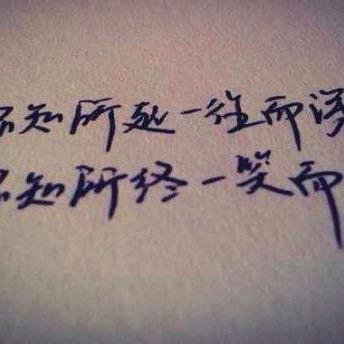 不知所起一往而
不知所终一笑而